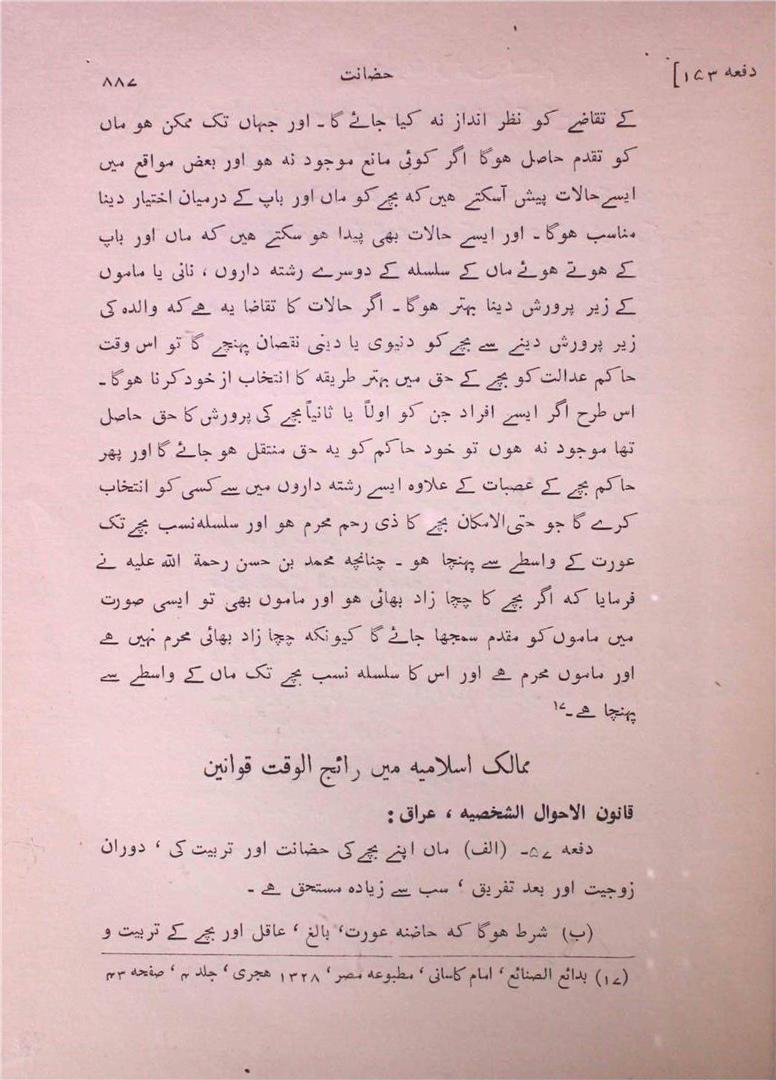 دفعہ ۱۵۳] حضانت ۸۸۷
کے تقاضے کو نظر انداز نہ کیا جائے گا۔ اور جہاں تک ممکن ہو ماں
کو تقدم حاصل ہوگا اگر کوئی مانع موجود نہ ہو اور بعض مواقع میں
ایسے حالات پیش آسکتے ہیں کہ بچے کو ماں اور باپ کے درمیان اختیار دینا
مناسب ہوگا۔ اور ایسے حالات بھی پیدا ہو سکتے ہیں کہ ماں اور باپ
کے ہوتے ہوئے ماں کے سلسلہ کے دوسرے رشتہ داروں ، نانی یا ماموں
کے زیر پرورش دینا بہتر ہوگا۔ اگر حالات کا تقاضا یہ ہے کہ والدہ کی
زیر پرورش دینے سے بچے کو دنیوی یا دینی نقصان پہنچے گا تو اس وقت
حاکم عدالت کو بچے کے حق میں بہتر طریقہ کا انتخاب از خود کرنا ہوگا۔
اس طرح اگر ایسے افراد جن کو اولاً یا ثانیاً بچے کی پرورش کا حق حاصل
تھا موجود نہ ہوں تو خود حاکم کو یہ حق منتقل ہو جائے گا اور پھر
حاکم بچے کے عصبات کے علاوہ ایسے رشتہ داروں میں سے کسی کو انتخاب
کرے گا جو حتی الامکان بچے کا ذی رحم محرم ہو اور سلسلہ نسب بچے تک
عورت کے واسطے سے پہنچا ہو ۔ چنانچہ محمد بن حسن رحمة اللہ علیہ نے
فرمایا کہ اگر بچے کا چچا زاد بھائی ہو اور ماموں بھی تو ایسی صورت
میں ماموں کو مقدم سمجھا جائے گا کیونکہ چچا زاد بھائی محرم نہیں ہے
اور ماموں محرم ہے اور اس کا سلسلہ نسب بچے تک ماں کے واسطے سے
پہنچا ہے۔۱۷
ممالک اسلامیہ میں رائج الوقت قوانین
قانون الاحوال الشخصیہ ، عراق :
دفعہ ۵۷۔ (الف) ماں اپنے بچے کی حضانت اور تربیت کی ، دوران
زوجیت اور بعد تفریق ، سب سے زیادہ مستحق ہے ۔
(ب) شرط ہوگا کہ حاضنہ عورت، بالغ ، عاقل اور بچے کے تربیت و
(۱۷) بدائع الصنائع ، امام کاسانی ، مطبوعہ مصر ، ۱۳۲۸ ہجری ، جلد ۴ ، صفحہ ۴۳